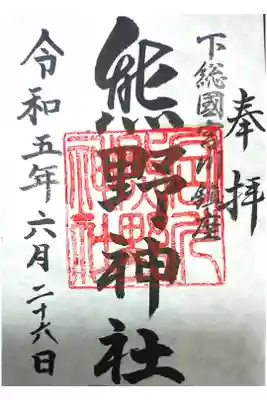 奉拝
下総國古川鎮座
熊野神社
令和五年六月二十六日